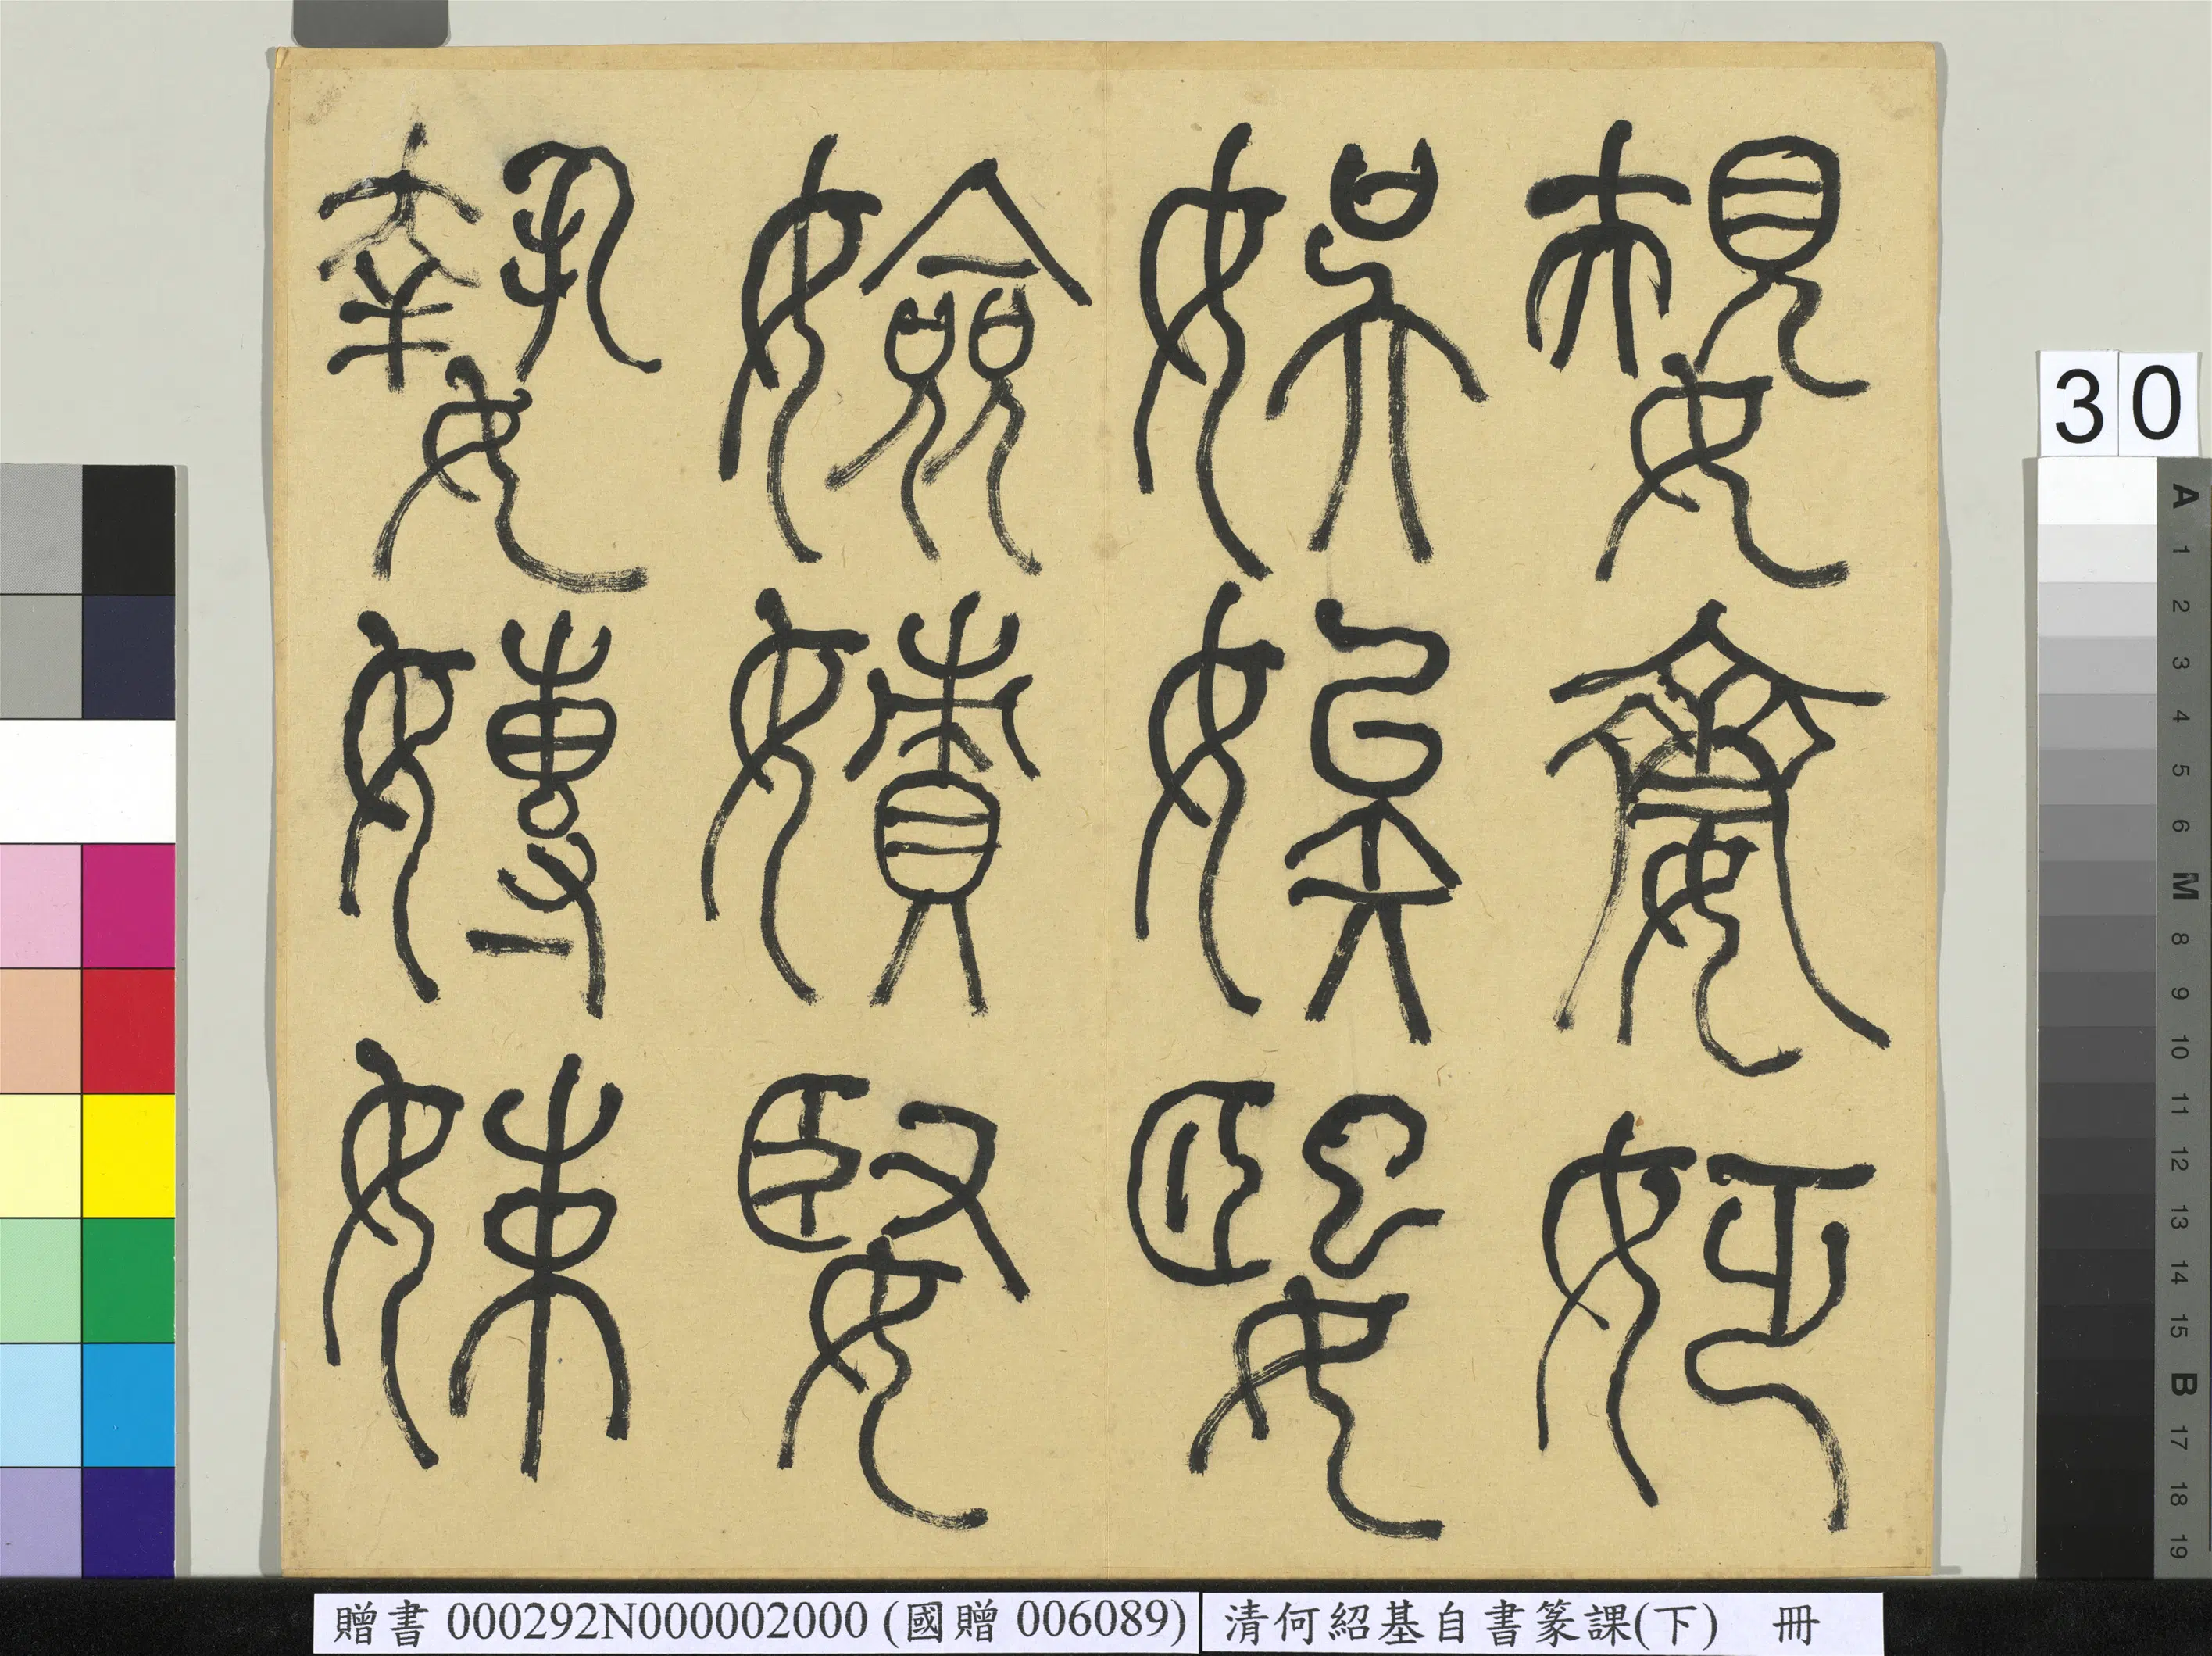 嫢䶒
娛娭媐
嬐嫧婜
𡠗嫥娕
30
A 1 2 3 4 5 6 M 8 9 10 11 12 13 14 15 B 17 18 19
贈書 000292N000002000 (國贈 006089)
清何紹基自書篆課(下) 冊